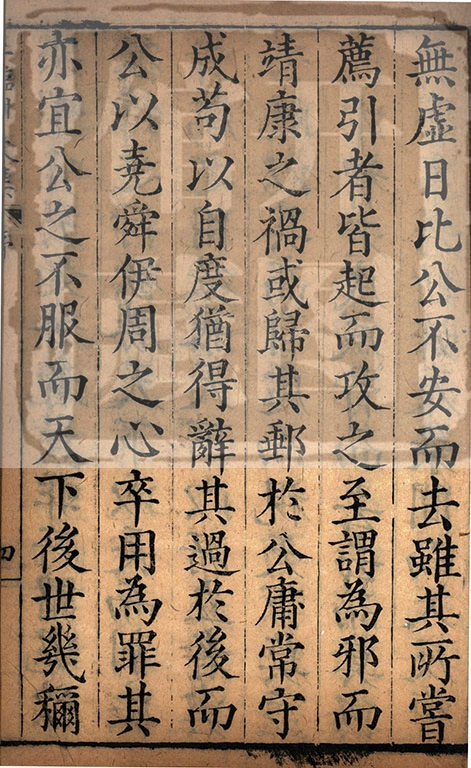 無虛日比公不安而去雖其所嘗
薦引者皆起而攻之至謂為邪而
靖康之禍或歸其郵於公庸常守
成苟以自度猶得辭其過於後而
公以堯舜伊周之心卒用為罪其
亦宜公之不服而天下後世幾稱
四